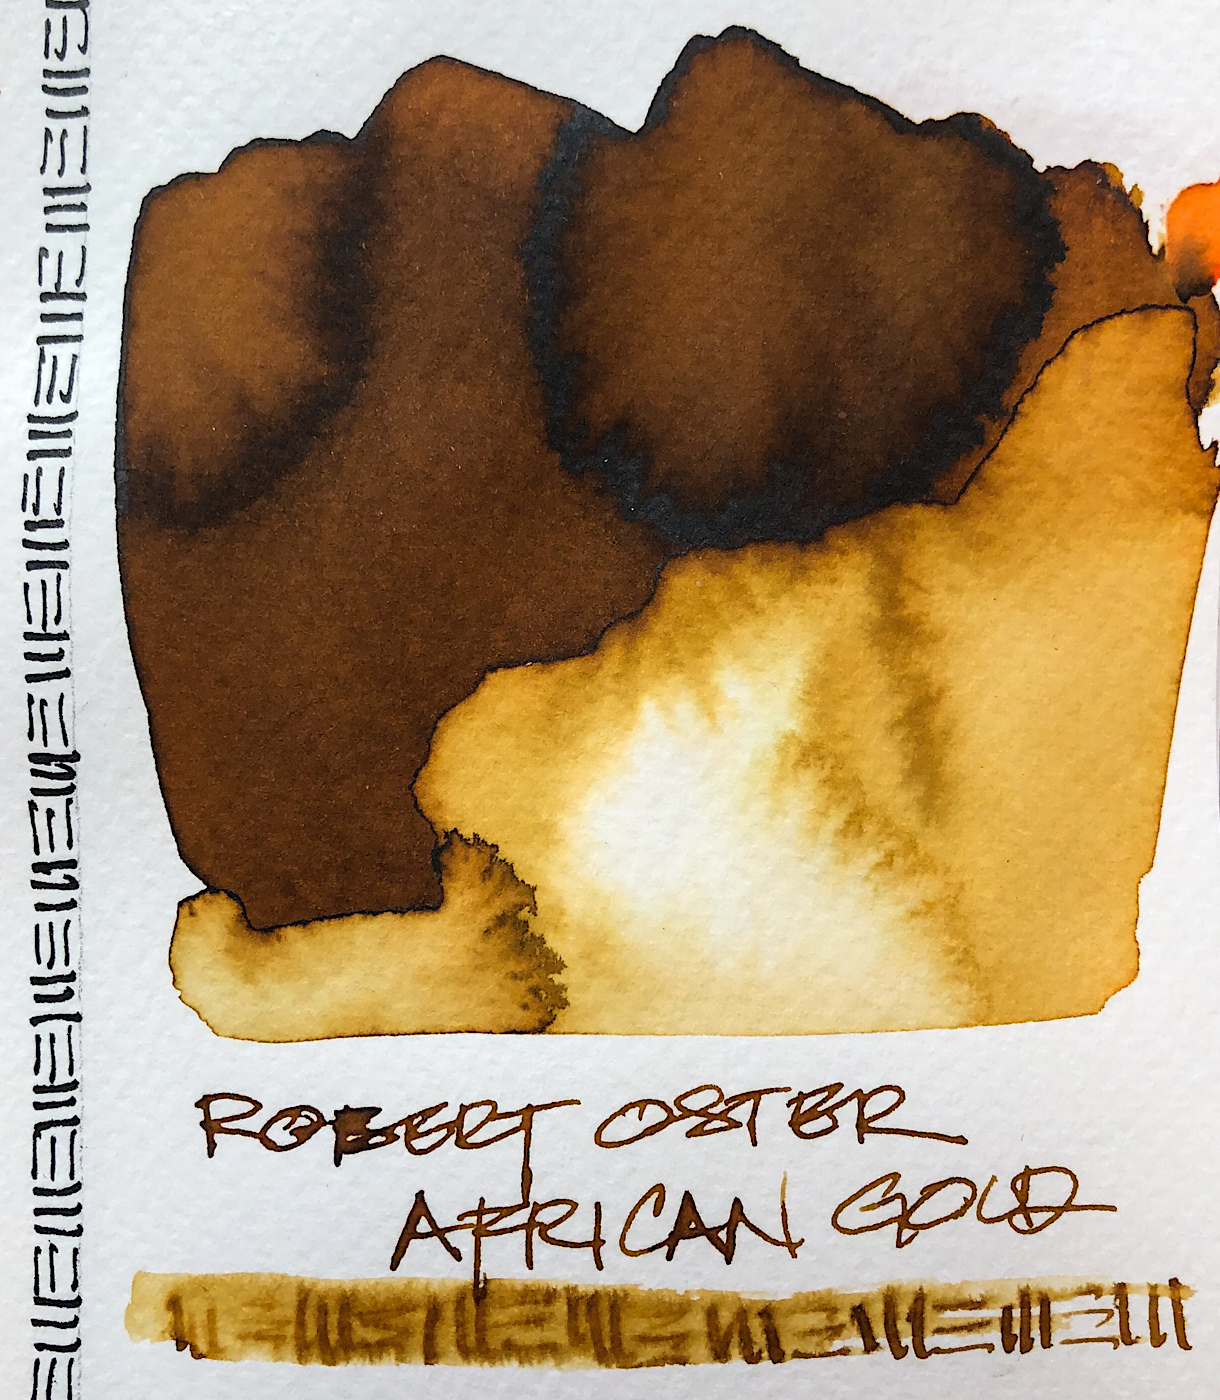 ROBERT OSTER
AFRICAN GOLD